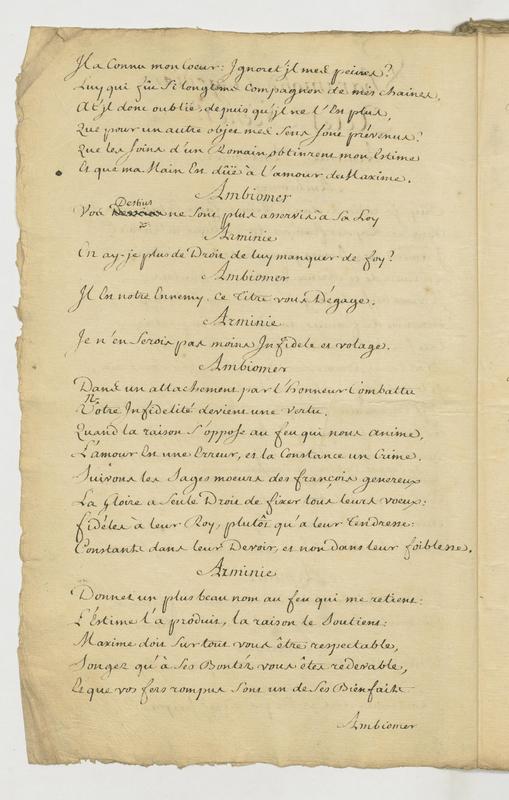 Il a Connu mon Coeur: Ignoret'il mes peines?
Luy qui fut si longtems Compagnon de mes chaines,
At'il donc oublié, depuis qu'il ne l'En plus,
Que pour un autre objet mes Sens sont prévenus?
Que les soins d'un Romain obtinrent mon Estime
Et que ma Main Est dûë à l'amour de Maxime.
Ambiomer
Destins
Vos ne sont plus asservis à Sa Loy
Arminie
En ay-je plus de Droit de luy manquer de foy?
Ambiomer
Il En notre Ennemy. Ce Titre vous Dégage.
Arminie
Je n'en Serois pas moins Infidele et volage.
Ambiomer
Dans un attachement par l'Honneur Combattu
N
Notre Infidelité devient une vertu.
Quand la raison S'oppose au feu qui nous anime,
L'amour En une Erreur, et la Constance un Crime.
Suivons les Sages moeurs des françois genereux
La Gloire a Seule Droit de fixer tous leurs voeux:
fidéles à leur Roy, plutôt qu'à leur Tendresse:
Constants dans leur Devoir, et non dans leur foiblesse.
Arminie
Donnez un plus beau nom au feu qui me retient:
L'Estime l'a produit, la raison le Soutient:
Maxime doit Sur tout vous être respectable,
Songez qu'à Ses Bontez vous êtes redevable,
Et que vos fers rompus Sont un de Ses Bienfaits
Ambiomer